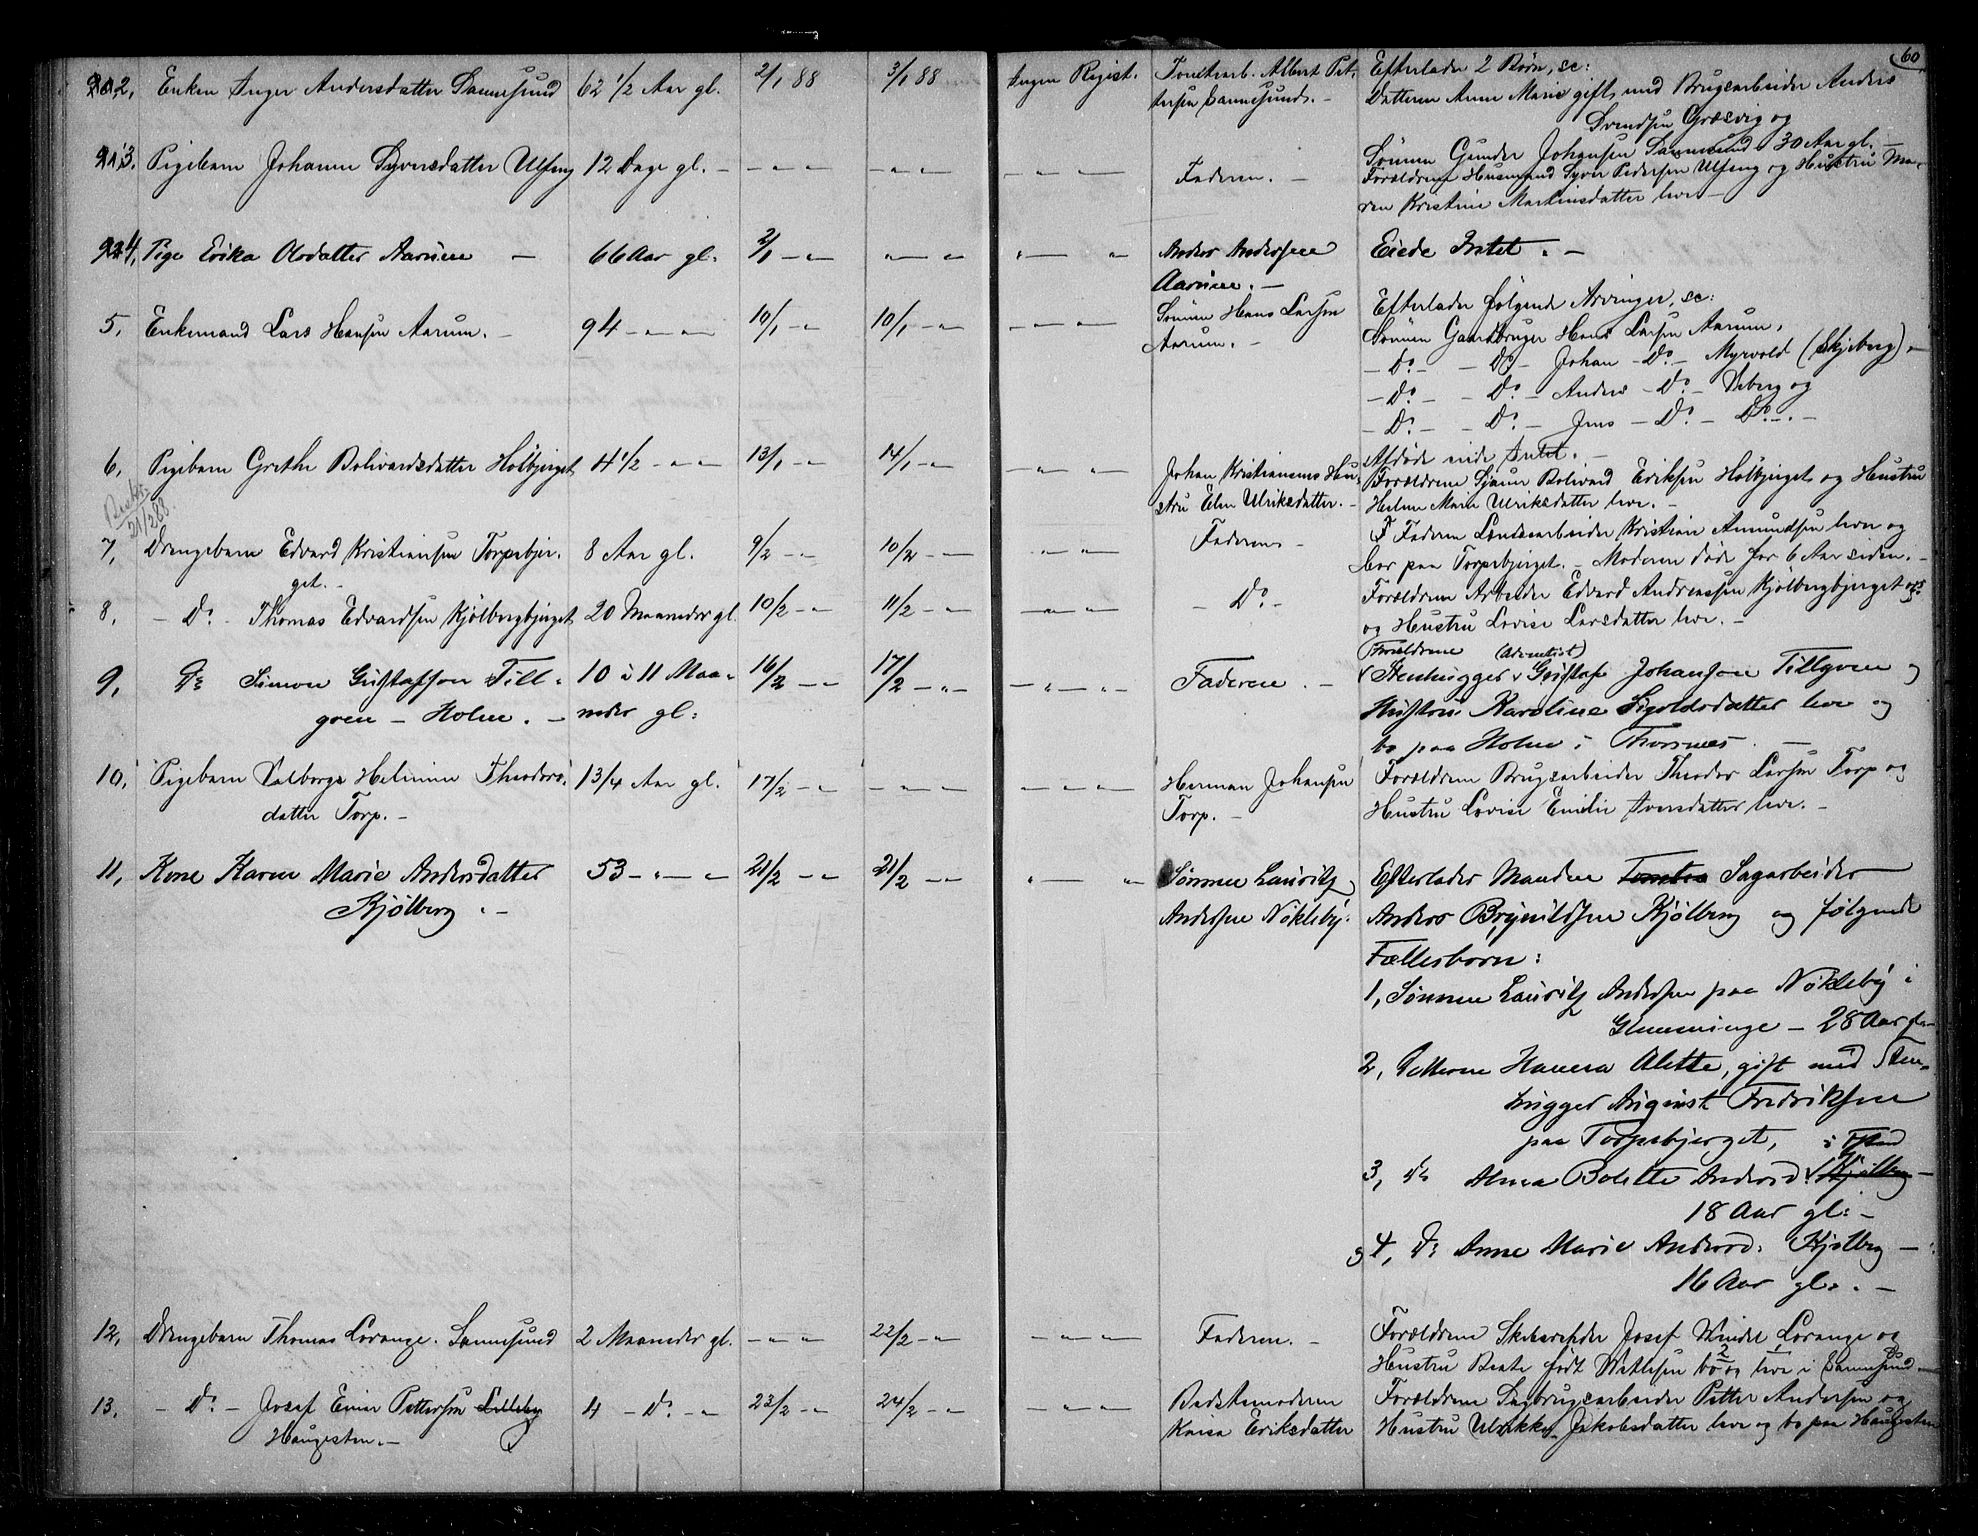 60
2, Enken Inger Andersdatter Sannesund 62 1/2 Aar gl. 2/1 88 3/1 88 Ingen Regist. Tomtearb. Albert Pet- Efterlader 2 Børn, sc:
tersen Sannesund. - Datteren Anne Marie gift med Brugsarbeider Anders
Svendsen Græsvig og
Sønnen Gunder Johansen Sannesund 30 Aar gl. -
3. Pigebarn Johanne Syversdatter Ulfeng 12 Dage gl. - - " - - " - - " - " - Faderen. - Forældrene Husmand Syver Pedersen Ulfeng og Hustru Ma-
ren Kristine Martinsdatter leve -
4, Pige Erika Olsdatter Aarum - 66 Aar gl. 2/1 - " - " - " " - " Anders Andersen Eiede Intet. -
Aarum. -
5, Enkemand Lars Hansen Aarum. - 94 - " - " 10/1 - " 10/1 - " - " - " - Sønnen Hans Larsen Efterlader følgende Arvinger, sc:
Aarum. - Sønnen Gaardbruger Hans Larsen Aarum,
- Do. - - Do - Johan - Do. - Myrvold (Skjeberg), -
- Do. - - Do. - Anders - Do - Veberg og
- Do. - - Do. - Jens - Do. - Do. - . -
Afdøde eiede Intet. -
6, Pigebarn Grethe Bolivardsdatter Holbjerget 4 1/2 - " - " 13/1 - " 14/1 - " - " - " - Johan Kristiansens Hu- Forældrene Gjæstr Bolivard Eriksen Holbjerget og Hustru
stru Elen Ulriksdatter. - Helene Marie Ulriksdatter leve. -
21/2 88.
7, Drengebarn Edvard Kristiansen Torpsbjer- 8 Aar gl. 9/2 - " 10/2 - " - - " - " Faderen - Faderen Landsarbeider Kristian Amundsen lever og
get. - bor paa Torpsbjerget. - Moderen døde for 6 Aar siden. -
8, - Do. - Thomas Edvardsen Kjølbergbjerget 20 Maaneder gl. 10/2 - " 11/2 - " - " - " - Do. - Forældrene Arbeider Edvard Andreassen Kjølbergbjerget
og Hustru Lovise Larsdatter leve. -
Forældrene (Adventist)
9, Do Simon Gustafson Till- 10 à 11 Maa- 16/2 - " 17/2 - " - - " - " - Faderen. - Stenhugger Gustaf Johanson Tillgren og
gren - Holm. - neder gl: Hustru Karoline Sigvoldsdatter leve og
bo paa Holm i Thorsnes. -
10, Pigebarn Valborg Heliene Theodors- 1 3/4 Aar gl. 17/2 - " - " - " - " - " - Herman Johansen Forældrene Brugsarbeider Theodor Larsen Torp og
datter Torp. - Torp. - Hustru Lovise Emilie Iversdatter leve. -
11, Kone Karen Marie Andersdatter 53 - " - " 21/2 - " 21/2 - " " - " Sønnen Lauritz Efterlader Manden Tomtea Sagarbeider
Kjølberg. - Andersen Nøkleby. Anders Brynildsen Kjølberg og følgende
Fællesbørn:
1, Sønnen Lauritz Andersen paa Nøkleby i
Glemminge - 28 Aar gl -
2, Datteren Hanna Alette, gift med Sten-
hugger August Fredriksen
paa Torpsbjerget,
3, do Alma Bolette Andersd. Kjølberg -
18 Aar gl: -
4, do Anne Marie Andersd: Kjølberg -
16 Aar gl. -
12, Drengebarn Thomas Lorange. Sannesund 2 Maaneder gl. - " - " 22/2 - " - " - " - Faderen. - Forældrene Skibsreder Josef Windel Lorange og
Hustru Beate født Wetlesen bo og leve i Sannesund -
13. - Do. - Josef Einar Pettersen Lilleby 4 - Do. - " 23/2 - " 24/2 - " - " - " - Bedstemoderen Forældrene Sagbrugsarbeider Petter Andersen og
Haugesten. - Kaisa Eriksdatter Hustru Ulrikke Jakobsdatter leve og bo paa Haugesten